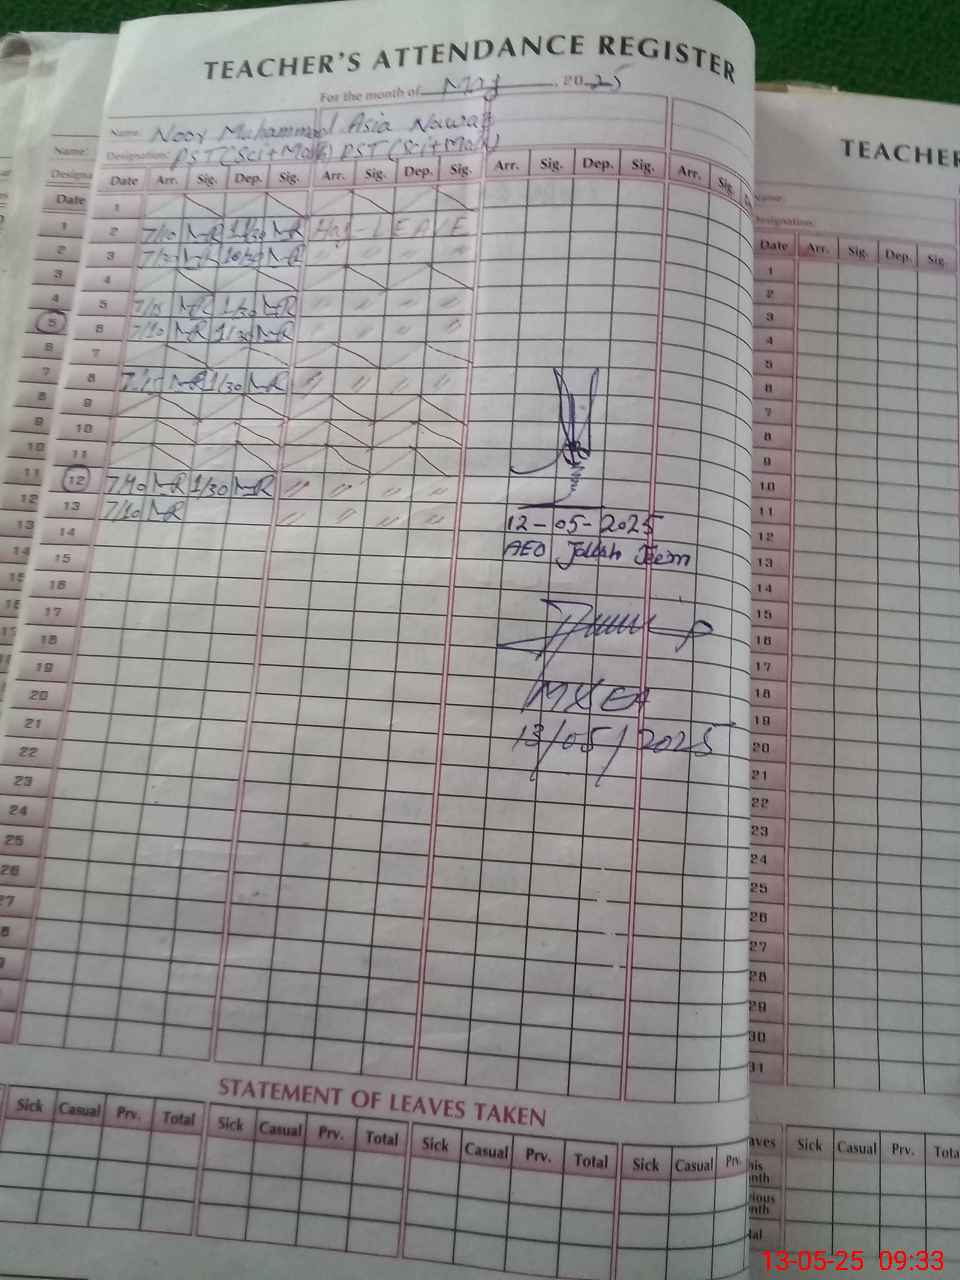 TEACHER'S ATTENDANCE REGISTER
For the month of May, 2025
Name: Noor Muhammad Asia Nawab
Designation: PST(Sci+Math) PST(Sci+Math)
Date Arr. Sig. Dep. Sig. Arr. Sig. Dep. Sig. Arr. Sig. Dep. Sig. Arr. Sig.
1
2 7/10 NR 11/30 NR Haj-LEAVE
3 NR 10/30 NR
4
5 7/15 NR 1/30 NR
6 7/10 NR 1/30 NR
7
8 NR 1/30 NR
9
10
11
12 7/10 NR 1/30 NR
13 7/10 NR
14
15
16
17
18
19
20
21
22
23
24
25
26
27
12-05-2025
AEO Jallah Jeem
MXEA
13/05/2025
STATEMENT OF LEAVES TAKEN
Sick Casual Prv. Total Sick Casual Prv. Total Sick Casual Prv. Total Sick Casual Prv.
Name:
Date
1
2
3
4
5
6
7
8
9
10
11
12
13
14
15
16
TEACHER
Name:
Designation:
Date Arr. Sig. Dep. Sig.
1
2
3
4
5
6
7
8
9
10
11
12
13
14
15
16
17
18
19
20
21
22
23
24
25
26
27
28
29
30
31
Sick Casual Prv. Tota
13-05-25 09:33